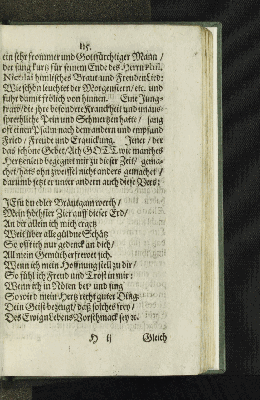 115.
ein sehr frommer und Gottsfürchtiger Mann /
der sang kurtz für seinem Ende des Herrn Phil.
Nicolai himlisches Braut und Freuden Lied:
Wie schön leuchtet der Morgenstern / etc. und
fuhr damit frölich von hinnen. Eine Jung-
fraw / die ihre besondere Kranckheit und unauss-
sprechliche Pein und Schmertzen hatte / sang
oft einen Psalm nach dem andern und empfand
Fried / Freude und Erquickung. Jener / der
das schöne Gebet / Ach GOTT wie manches
Hertzenleid begegnet mir zu dieser Zeit / gema-
chet / hats ohn zweiffel nicht anders gemachet /
darumb setzt er unter andern auch diese Vers:
JEsu du edler Bräutgam werth /
Mein höchste Zier auff dieser Erd /
An dir allein ich mich ergetz
Weit über alle güldne Schätz
So offt ich nur gedenck an dich /
All mein Gemüth erfrewet sich.
Wenn ich mein Hoffnung stell zu dir /
So fühl ich Freud und Trost in mir:
Wenn ich in Nöten bet und sing
So wird mein Hertz recht guter Ding:
Dein Geist bezeugt / daß solches frey /
Des Ewign Lebens Vorschmack sey ꝛc.
H ij Gleich